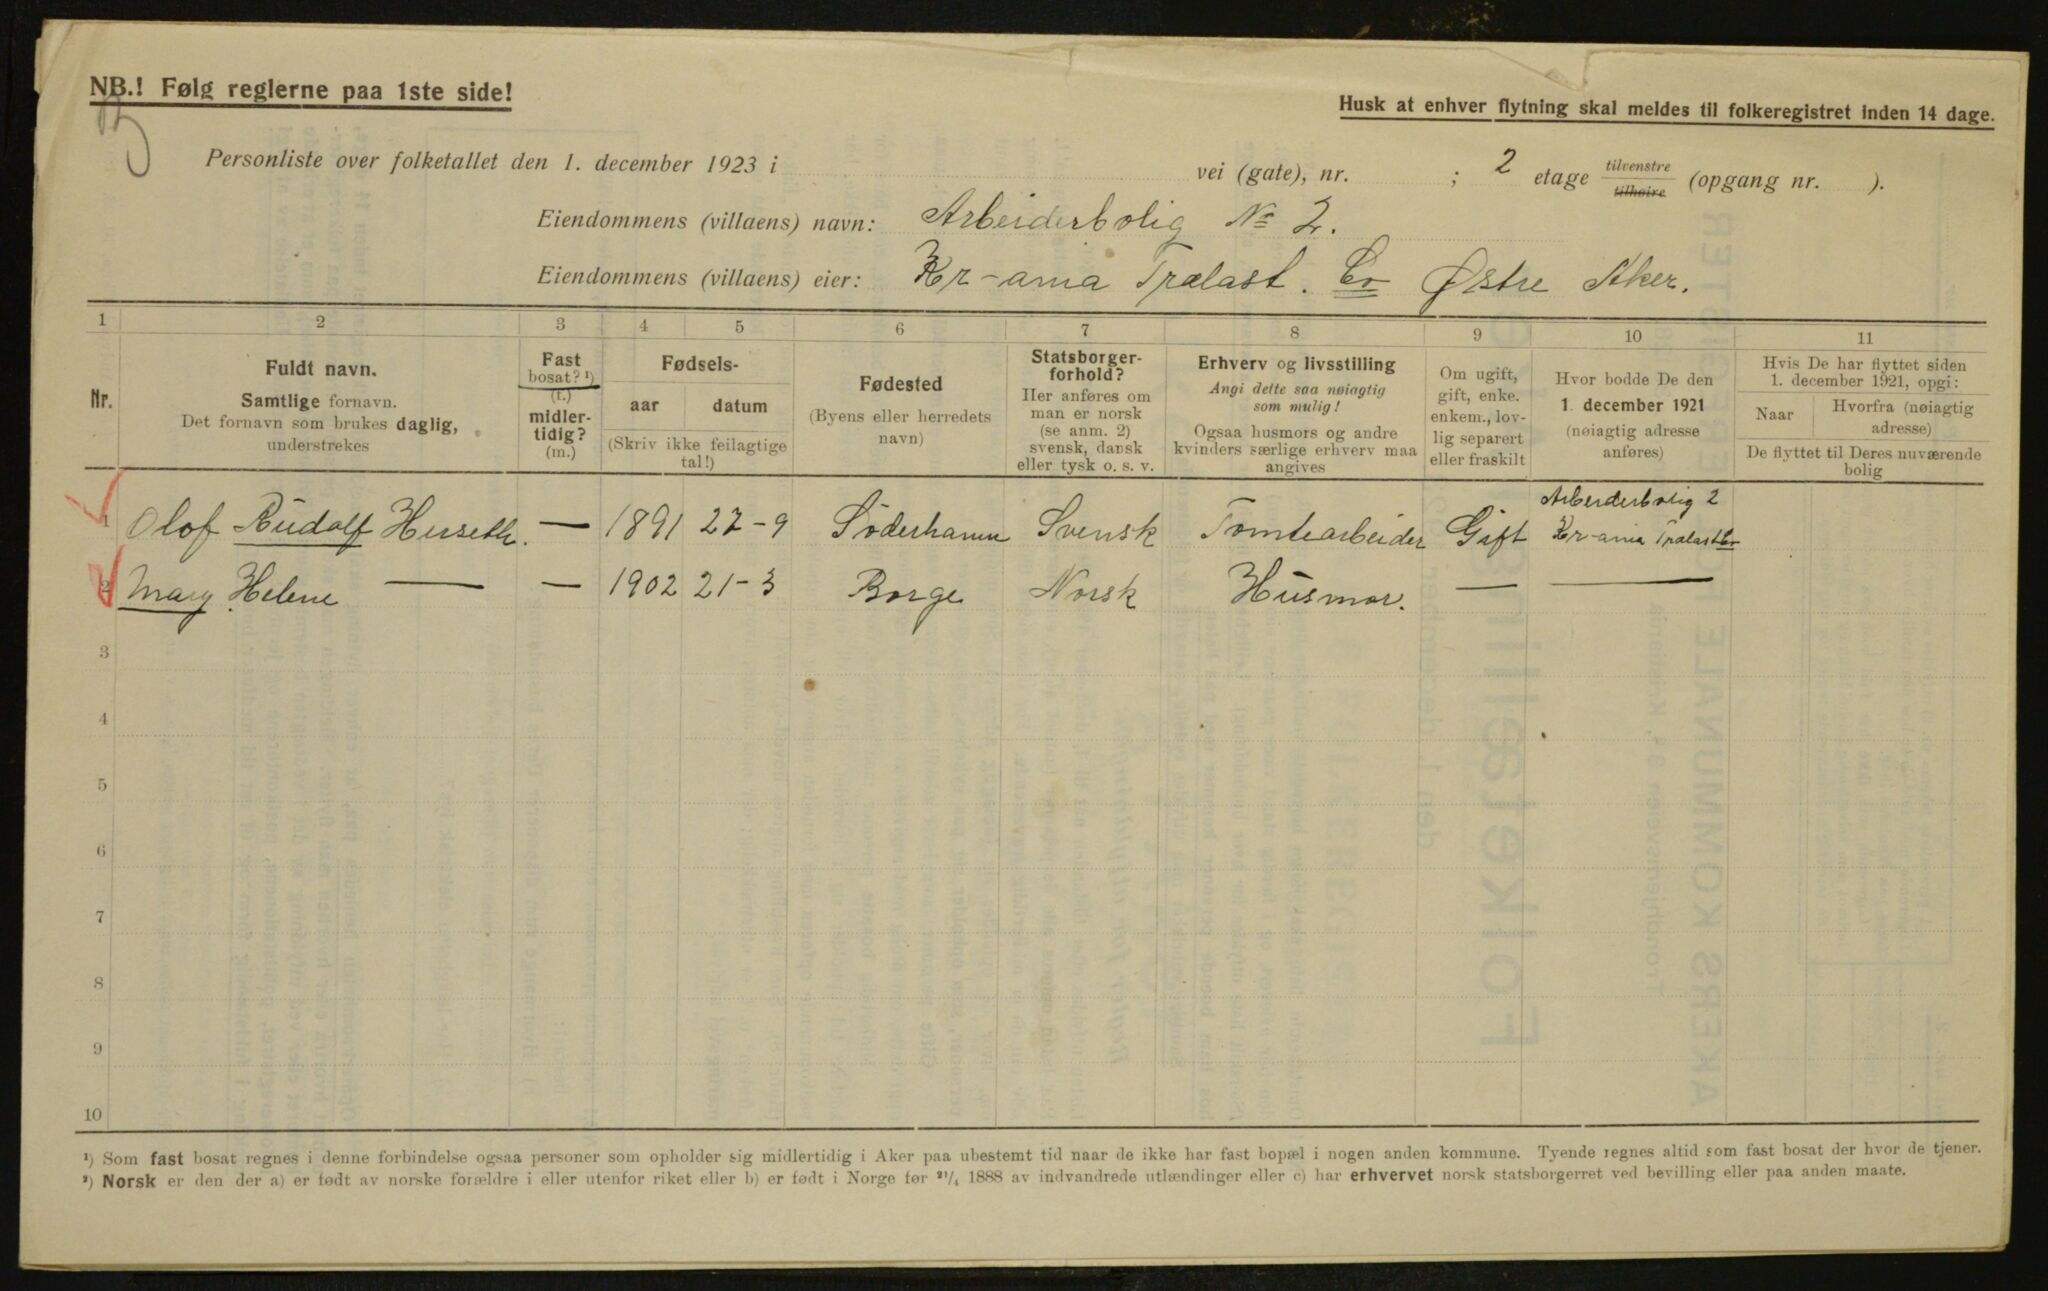 NB.! Følg reglerne paa 1ste side!
Husk at enhver flytning skal meldes til folkeregistret inden 14 dage.
Personliste over folketallet den 1. december 1923 i vei (gate), nr. ; 2 etage tilvenstre tilhøire (opgang nr. ).
Eiendommens (villaens) navn: Arbeiderbolig No 2.
Eiendommens (villaens) eier: Kr-ania Trælast. Co Østre Aker.
1 2 3 4 5 6 7 8 9 10 11
Nr.
Fuldt navn.
Samtlige fornavn.
Det fornavn som brukes daglig,
understrekes
Fast
bosat? ¹)
(f.)
midler-
tidig?
(m.)
Fødsels-
aar datum
(Skriv ikke feilagtige
tal!)
Fødested
(Byens eller herredets
navn)
Statsborger-
forhold?
Her anføres om
man er norsk
(se anm. 2)
svensk, dansk
eller tysk o. s. v.
Erhverv og livsstilling
Angi dette saa nøiagtig
som mulig!
Ogsaa husmors og andre
kvinders særlige erhverv maa
angives
Om ugift,
gift, enke.
enkem., lov-
lig separert
eller fraskilt
Hvor bodde De den
1. december 1921
(nøiagtig adresse
anføres)
Hvis De har flyttet siden
1. december 1921, opgi:
Naar Hvorfra (nøiagtig
adresse)
De flyttet til Deres nuværende
bolig
Arbeiderbolig 2
1 Olof Rudolf Herseth. — 1891 27-9 Söderhamn Svensk Tomtearbeider Gift Kr-ania Trælast Co
2 Mary Helene — — 1902 21-3 Borge Norsk Husmor. — —
3
4
5
6
7
8
9
10
¹) Som fast bosat regnes i denne forbindelse ogsaa personer som opholder sig midlertidig i Aker paa ubestemt tid naar de ikke har fast bopæl i nogen anden kommune. Tyende regnes altid som fast bosat der hvor de tjener.
²) Norsk er den der a) er født av norske forældre i eller utenfor riket eller b) er født i Norge før ²¹/₄ 1888 av indvandrede utlændinger eller c) har erhvervet norsk statsborgerret ved bevilling eller paa anden maate.